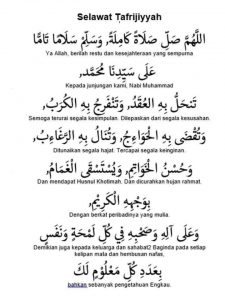 Selawat Tafrijiyyah
اَللّٰهُمَّ صَلِّ صَلَاةً كَامِلَةً, وَسَلِّمْ سَلَامًا تَامًّا
Ya Allah, berilah restu dan kesejahteraan yang sempurna
عَلَى سَيِّدِنَا مُحَمَّدٍ,
Kepada junjungan kami, Nabi Muhammad
تَنْحَلُّ بِهِ الْعُقَدُ, وَتَنْفَرِجُ بِهِ الْكُرَبُ,
Semoga terurai segala kesimpulan. Dilepaskan dari segala kesusahan.
وَتُقْضَى بِهِ الْحَوَائِجُ, وَتُنَالُ بِهِ الرَّغَائِبُ,
Ditunaikan segala hajat. Tercapai segala keinginan.
وَحُسْنُ الْخَوَاتِمِ, وَيُسْتَسْقَى الْغَمَامُ,
Dan mendapat Husnul Khotimah. Dan dicurahkan hujan rahmat.
بِوَجْهِهِ الْكَرِيمِ,
Dengan berkat peribadinya yang mulia.
وَعَلَى آلِهِ وَصَحْبِهِ فِي كُلِّ لَمْحَةٍ وَنَفَسٍ
Demikian juga kepada keluarga dan sahabat2 Baginda pada setiap
kelipan mata dan hembusan nafas,
بِعَدَدِ كُلِّ مَعْلُومٍ لَكَ
bahkan sebanyak pengetahuan Engkau.